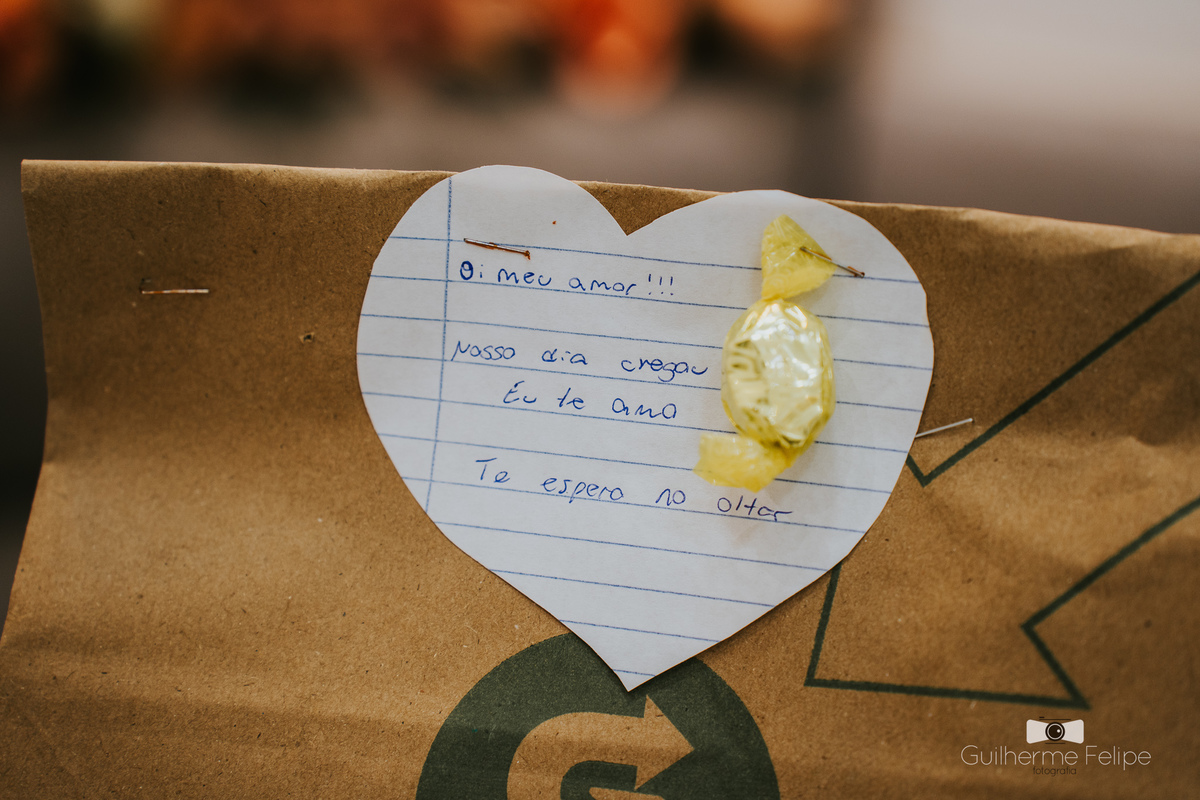 Oi meu amor!!!
Nosso dia cregau
Eu te amo
Te espero no altar
Guilherme Felipe
fotografia